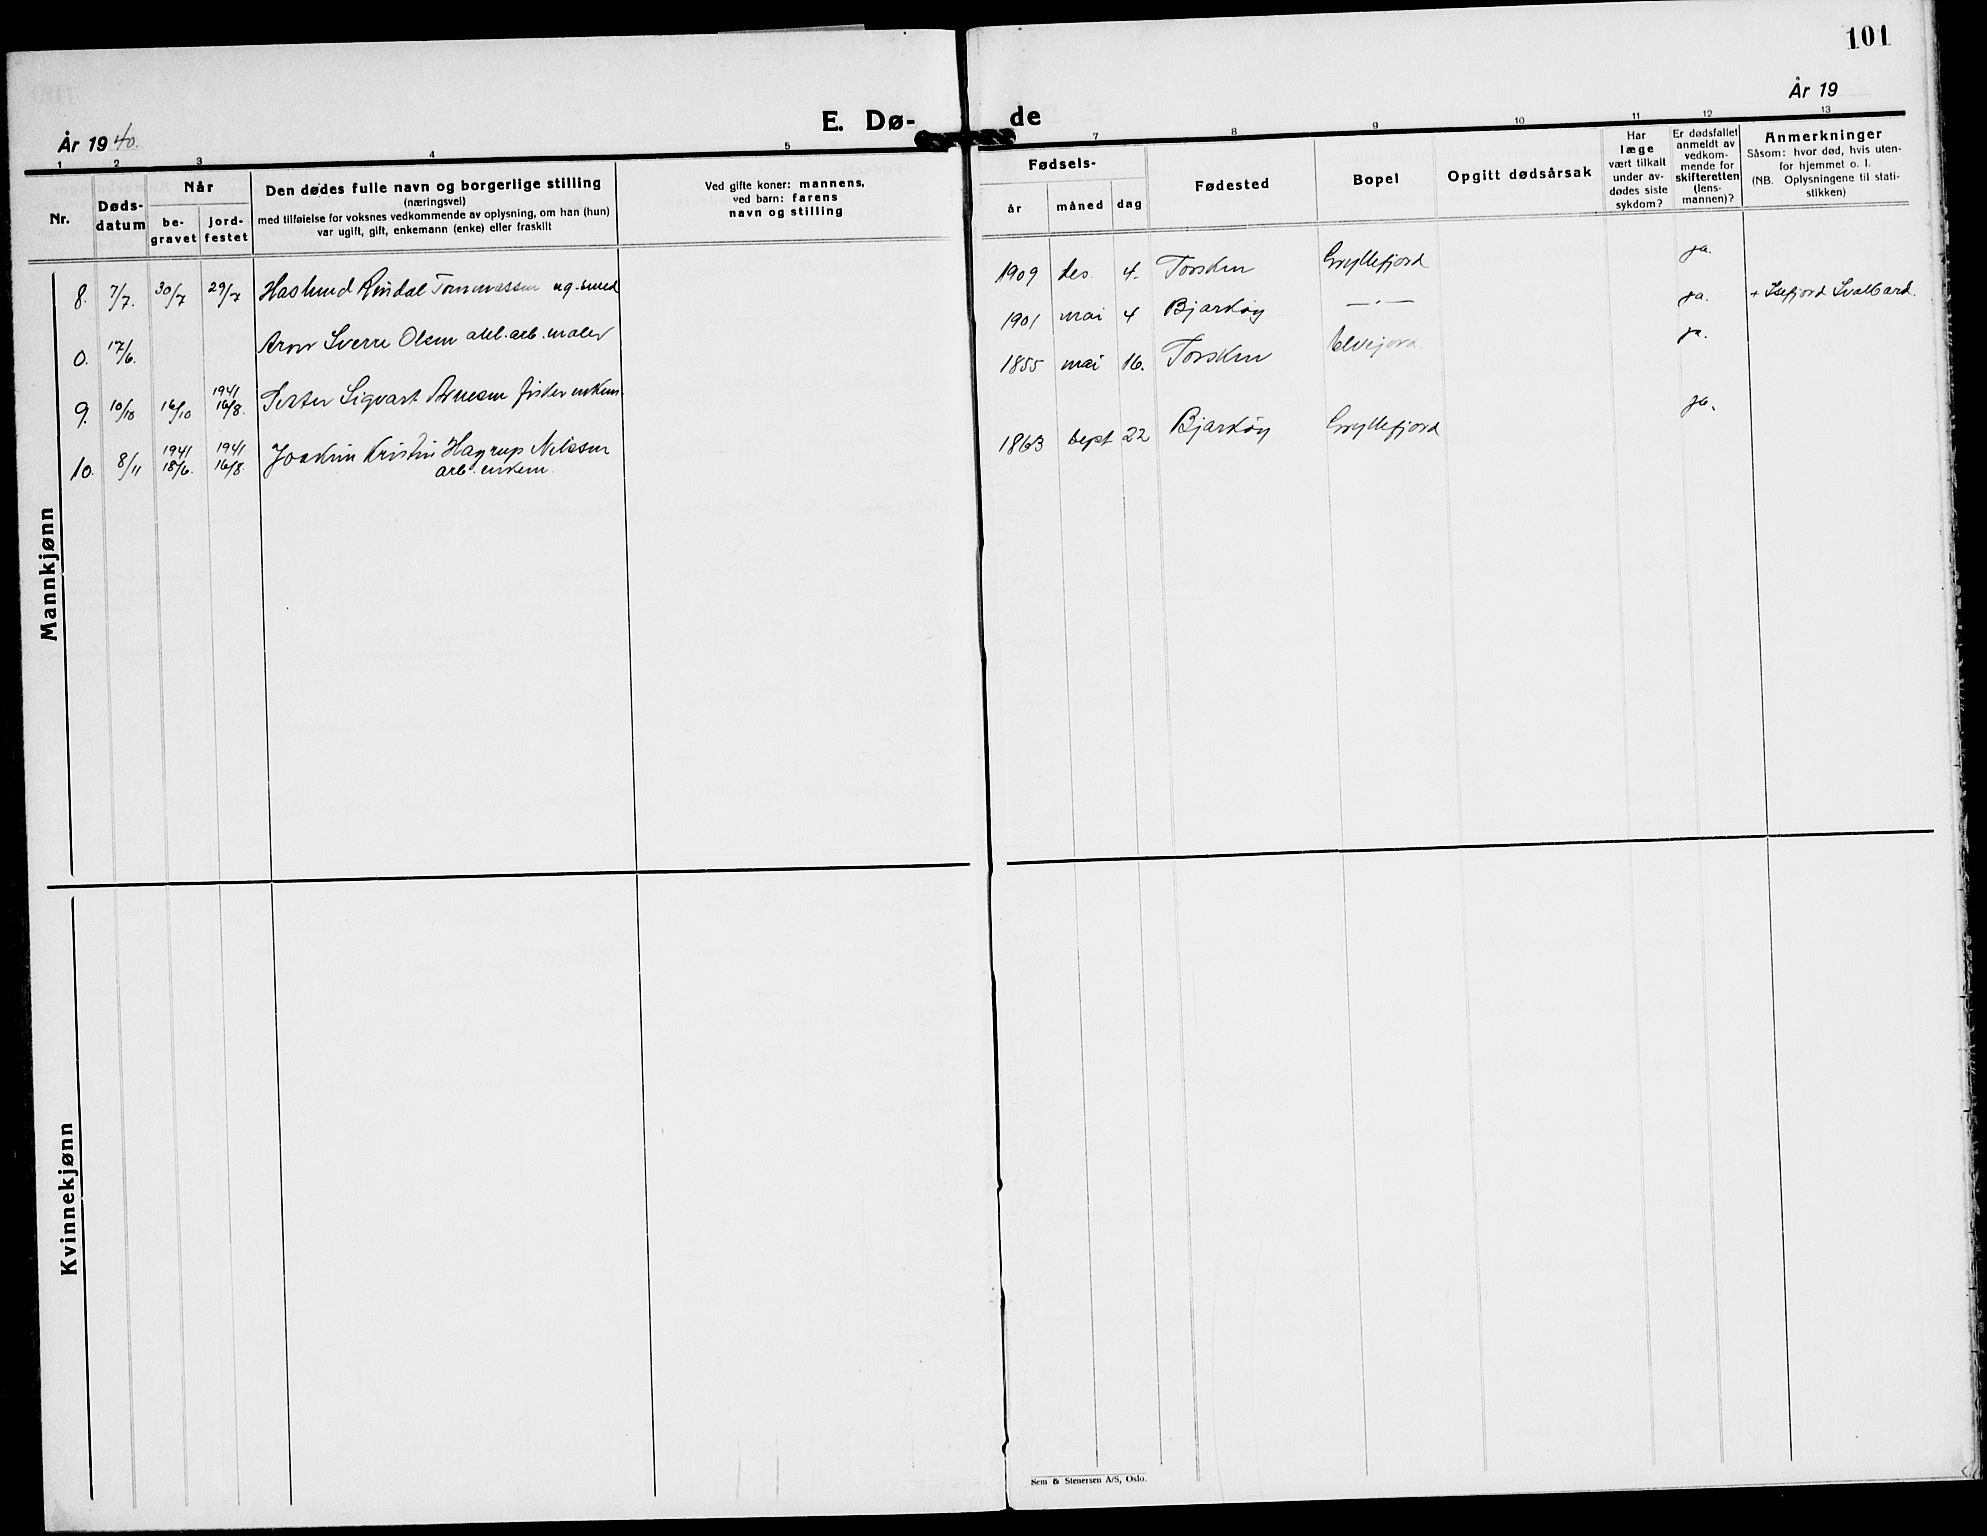 101
År 1940.
E. Dø-
de
År 19
1 2 3 4 5 7 8 9 10 11 12 13
Nr.
Døds-
datum
Når
be-
gravet
jord-
festet
Den dødes fulle navn og borgerlige stilling
(næringsvei)
med tilføielse for voksnes vedkommende av oplysning, om han (hun)
var ugift, gift, enkemann (enke) eller fraskilt
Ved gifte koner: mannens,
ved barn: farens
navn og stilling
Fødsels-
år måned dag
Fødested
Bopel
Opgitt dødsårsak
Har
læge
vært tilkalt
under av-
dødes siste
sykdom?
Er dødsfallet
anmeldt av
vedkom-
mende for
skifteretten
(lens-
mannen)?
Anmerkninger
Såsom: hvor død, hvis uten-
for hjemmet o. l.
(NB. Oplysningene til stati-
stikken)
Mannkjønn
8. 7/7. 30/7 29/7 Haslund Rindal Tommassen ug. smed 1909 des. 4. Torsken Gryllefjord ja.
0. 17/6. Sverre Olsen arb. maler 1901 mai 4 Bjarkøy —"— ja. + Isefjord Svalbard.
1941
9. 10/10 16/10 16/8. Peder Sigvart Arnesen fisker enkem. 1855 mai 16. Torsken ja.
1941 1941
10. 8/11 18/6. 16/8. Joakim Kristin Hagrup Nilssen 1863 sept 22 Bjarkøy Gryllefjord ja.
arb. enkem.
Kvinnekjønn
Sem & Stenersen A/S, Oslo.